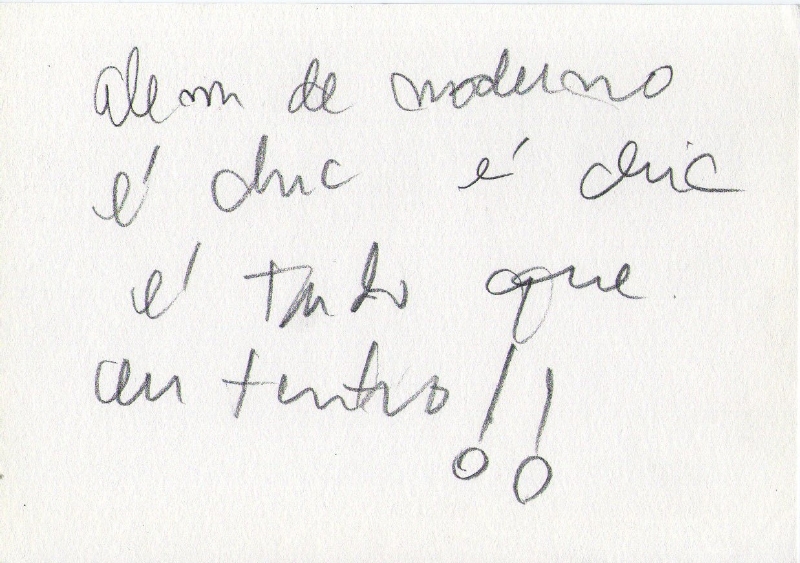 alem de moderno
é chic é chic
é tudo que
eu tento!!